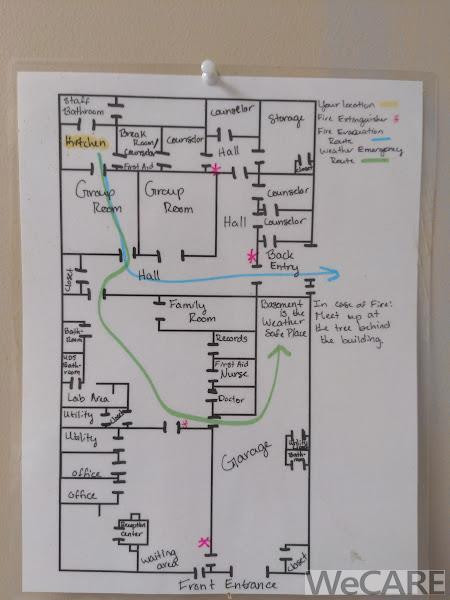 Staff
Bathroom
Kitchen
Break
Room/
Counselor
First Aid
Counselor
Counselor
Hall
Storage
Closet
Your location
Fire Extinguisher
Fire Evacuation
Route
Weather Emergency
Route
Group
Room
Group
Room
Hall
Counselor
Counselor
Back
Entry
Closet
Hall
Family
Room
Basement
is the
Weather
Safe Place
In case of Fire:
Meet up at
the tree behind
the building.
Bath-
room
UDS
Bath-
room
Records
First Aid
Nurse
Doctor
Lab Area
Utility
Closet
Utility
Office
Office
Garage
Utility
Closet
Bath-
room
Reception
Center
Waiting
area
Closet
Front Entrance
WeCARE